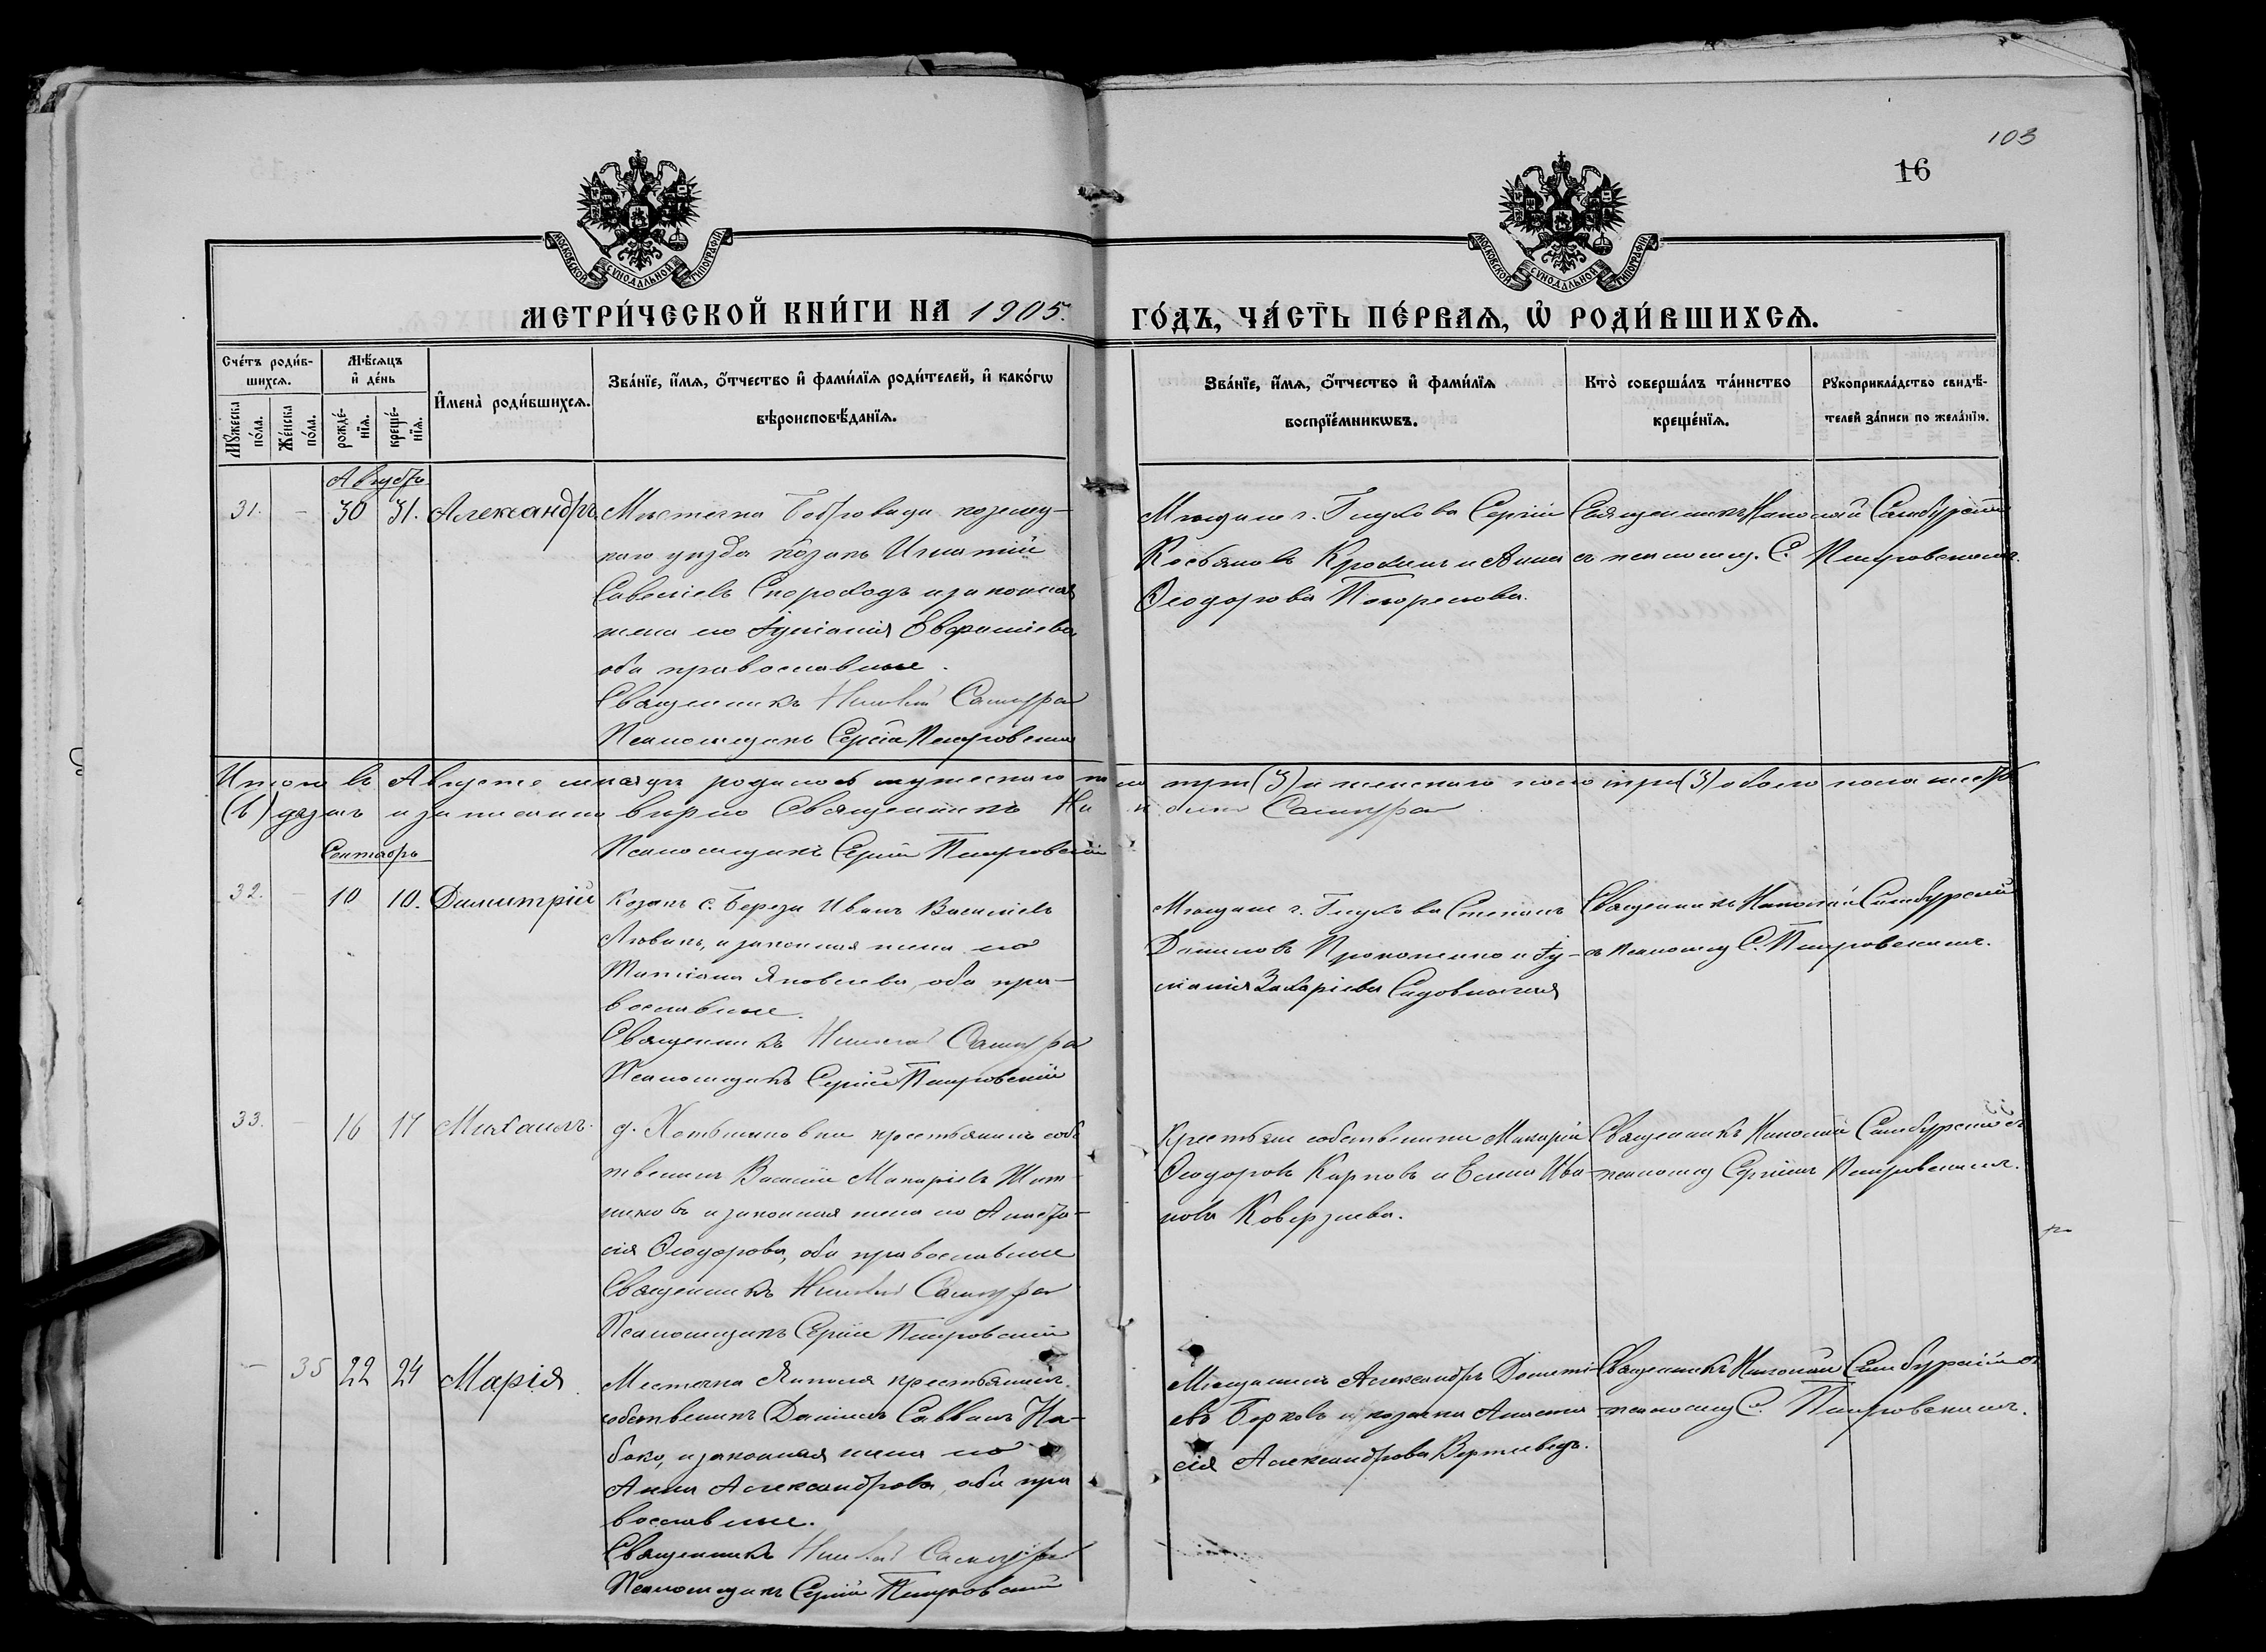 103
16
МОСКОВСКОЙ СѴНОДАЛЬНОЙ ТИПОГРАФІИ
МОСКОВСКОЙ СѴНОДАЛЬНОЙ ТИПОГРАФІИ
МЕТРИ́ЧЕСКОЙ КНИ́ГИ НА 1905.
ГО́ДЪ, ЧА́СТЬ ПЕ́РВАѦ, Ѡ҆ РОДИ́ВШИХСѦ.
Сче́тъ роди́в-
шихсѧ.
Мꙋ́жеска по́ла.
Же́нска по́ла.
Мѣ́сѧцъ
и҆ де́нь
рожде́-нїѧ.
креще́-нїѧ.
И҆мена̀ роди́вшихсѧ.
Зва́нїе, и҆́мѧ, ѻ҆́тчество и҆ фами́лїѧ роди́телей, и҆ како́гѡ
вѣроисповѣ́данїѧ.
Зва́нїе, и҆́мѧ, ѻ҆́тчество и҆ фами́лїѧ
воспрїе́мникѡвъ.
Кто̀ соверша́лъ та́инство
креще́нїѧ.
Рꙋкоприкла́дство свидѣ́-
телей за́писи по жела́нїю.
Августъ
31. - 30 31. Александръ.
Мѣстечка козелец-
каго уѣзда козакъ Игнатій
Савеліевъ Скороходъ и законная
жена его Іуліанія
оба православные.
Священникъ Николай Самбурскій
Псаломщикъ Сергій Петровскій
Мѣщане г. Глухова Сергій
и Анна
Ѳеодорова Погорелова.
Священникъ Николай Самбурскій
съ псаломщ. С. Петровскимъ.
Итого въ Августѣ мѣсяцѣ родилось мужескаго пола три (3) и женскаго пола три (3) обоего пола шесть
(6) душъ и записаны вѣрно Священникъ Николай Самбурскій
Псаломщикъ Сергій Петровскій
Сентябрь
32. - 10 10. Димитрій
Козакъ с. Береза Иванъ Василіевъ
и законная жена его
Татіана Яковлева, оба пра-
вославные.
Священникъ Николай Самбурскій
Псаломщикъ Сергій Петровскій
Мѣщане г. Глухова Стефанъ
Даниловъ Прокопенко и Іу-
ліанія Захаріева
Священникъ Николай Самбурскій
съ псаломщ. С. Петровскимъ.
33. - 16 17 Михаилъ.
д. крестьянинъ собс
твенникъ Василій Макаріевъ
и законная жена его Анаста-
сія Ѳеодорова, оба православные
Священникъ Николай Самбурскій
Псаломщикъ Сергій Петровскій
Крестьяне собственники Макарій
Ѳеодоровъ Карповъ и Елена Ива-
нова Коверзнева.
Священникъ Николай Самбурскій съ
псаломщ Сергіемъ Петровскимъ.
- 35 22 24 Марія.
Местечка Ямполя крестьянинъ
собственникъ Даніилъ Саввинъ На-
боко, и законная жена его
Анна Александрова, оба пра
вославные.
Священникъ Николай Самбурскій
Псаломщикъ Сергій Петровскій
Мѣщанинъ Александръ Дометі-
евъ и козачка Анаста-
сія Александрова
Священникъ Николай Самбурскій съ
псаломщ С. Петровскимъ.